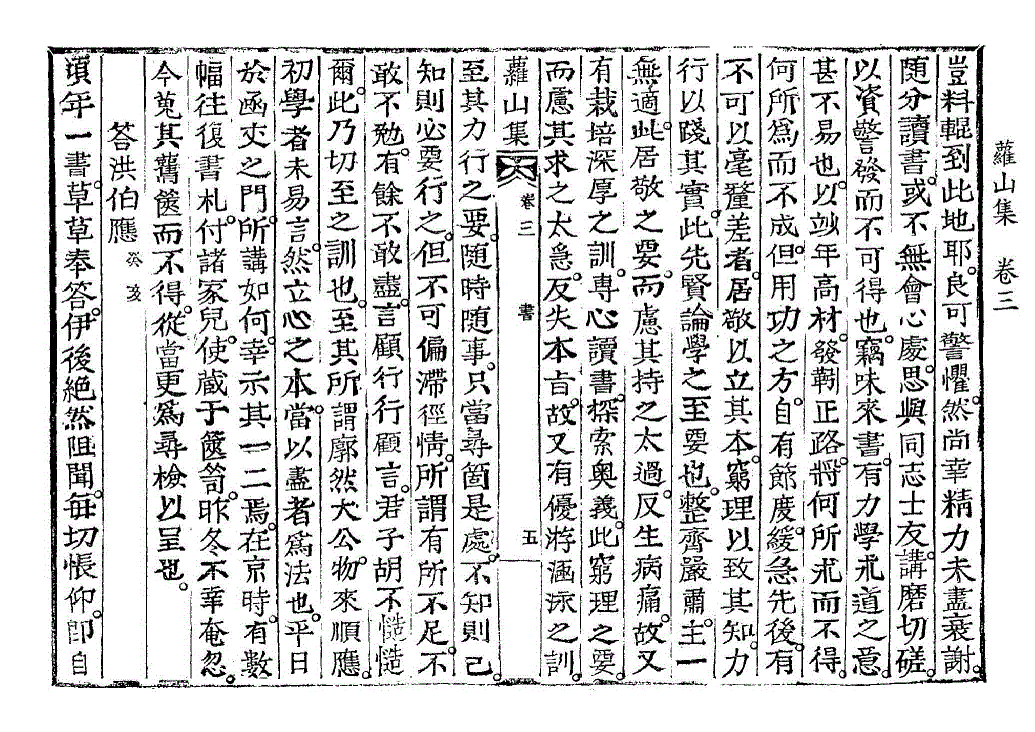 蘿山集　卷三
豈料輥到此地耶。良可警懼。然尚幸精力未盡衰謝。
隨分讀書。或不無會心處。思與同志士友。講磨切磋。
以資警發而不可得也。竊味來書。有力學求道之意
甚不易也。以妙年高材。發軔正路。將何所求而不得。
何所爲而不成。但用功之方。自有節度。緩急先後。有
不可以毫釐差者。居敬以立其本。窮理以致其知。力
行以踐其實。此先賢論學之至要也。整齊嚴肅。主一
無適。此居敬之要。而慮其持之太過。反生病痛。故又
有栽培深厚之訓。專心讀書。探索奧義。此窮理之要。
而慮其求之太急。反失本旨。故又有優游涵泳之訓。
蘿山集　卷三　書　五
至其力行之要。隨時隨事。只當尋箇是處。不知則已。
知則必要行之。但不可偏滯徑情。所謂有所不足。不
敢不勉。有餘不敢盡。言顧行行顧言。君子胡不慥慥
爾。此乃切至之訓也。至其所謂廓然大公。物來順應。
初學者未易言。然立心之本。當以盡者爲法也。平日
於函丈之門。所講如何。幸示其一二焉。在京時。有數
幅往復書札。付諸家兒。使藏于篋笥。昨冬不幸奄忽。
今蒐其舊篋而不得。從當更爲尋檢以呈也。
答洪伯應 癸亥
頃年一書。草草奉答。伊後絶然阻聞。每切悵仰。卽自